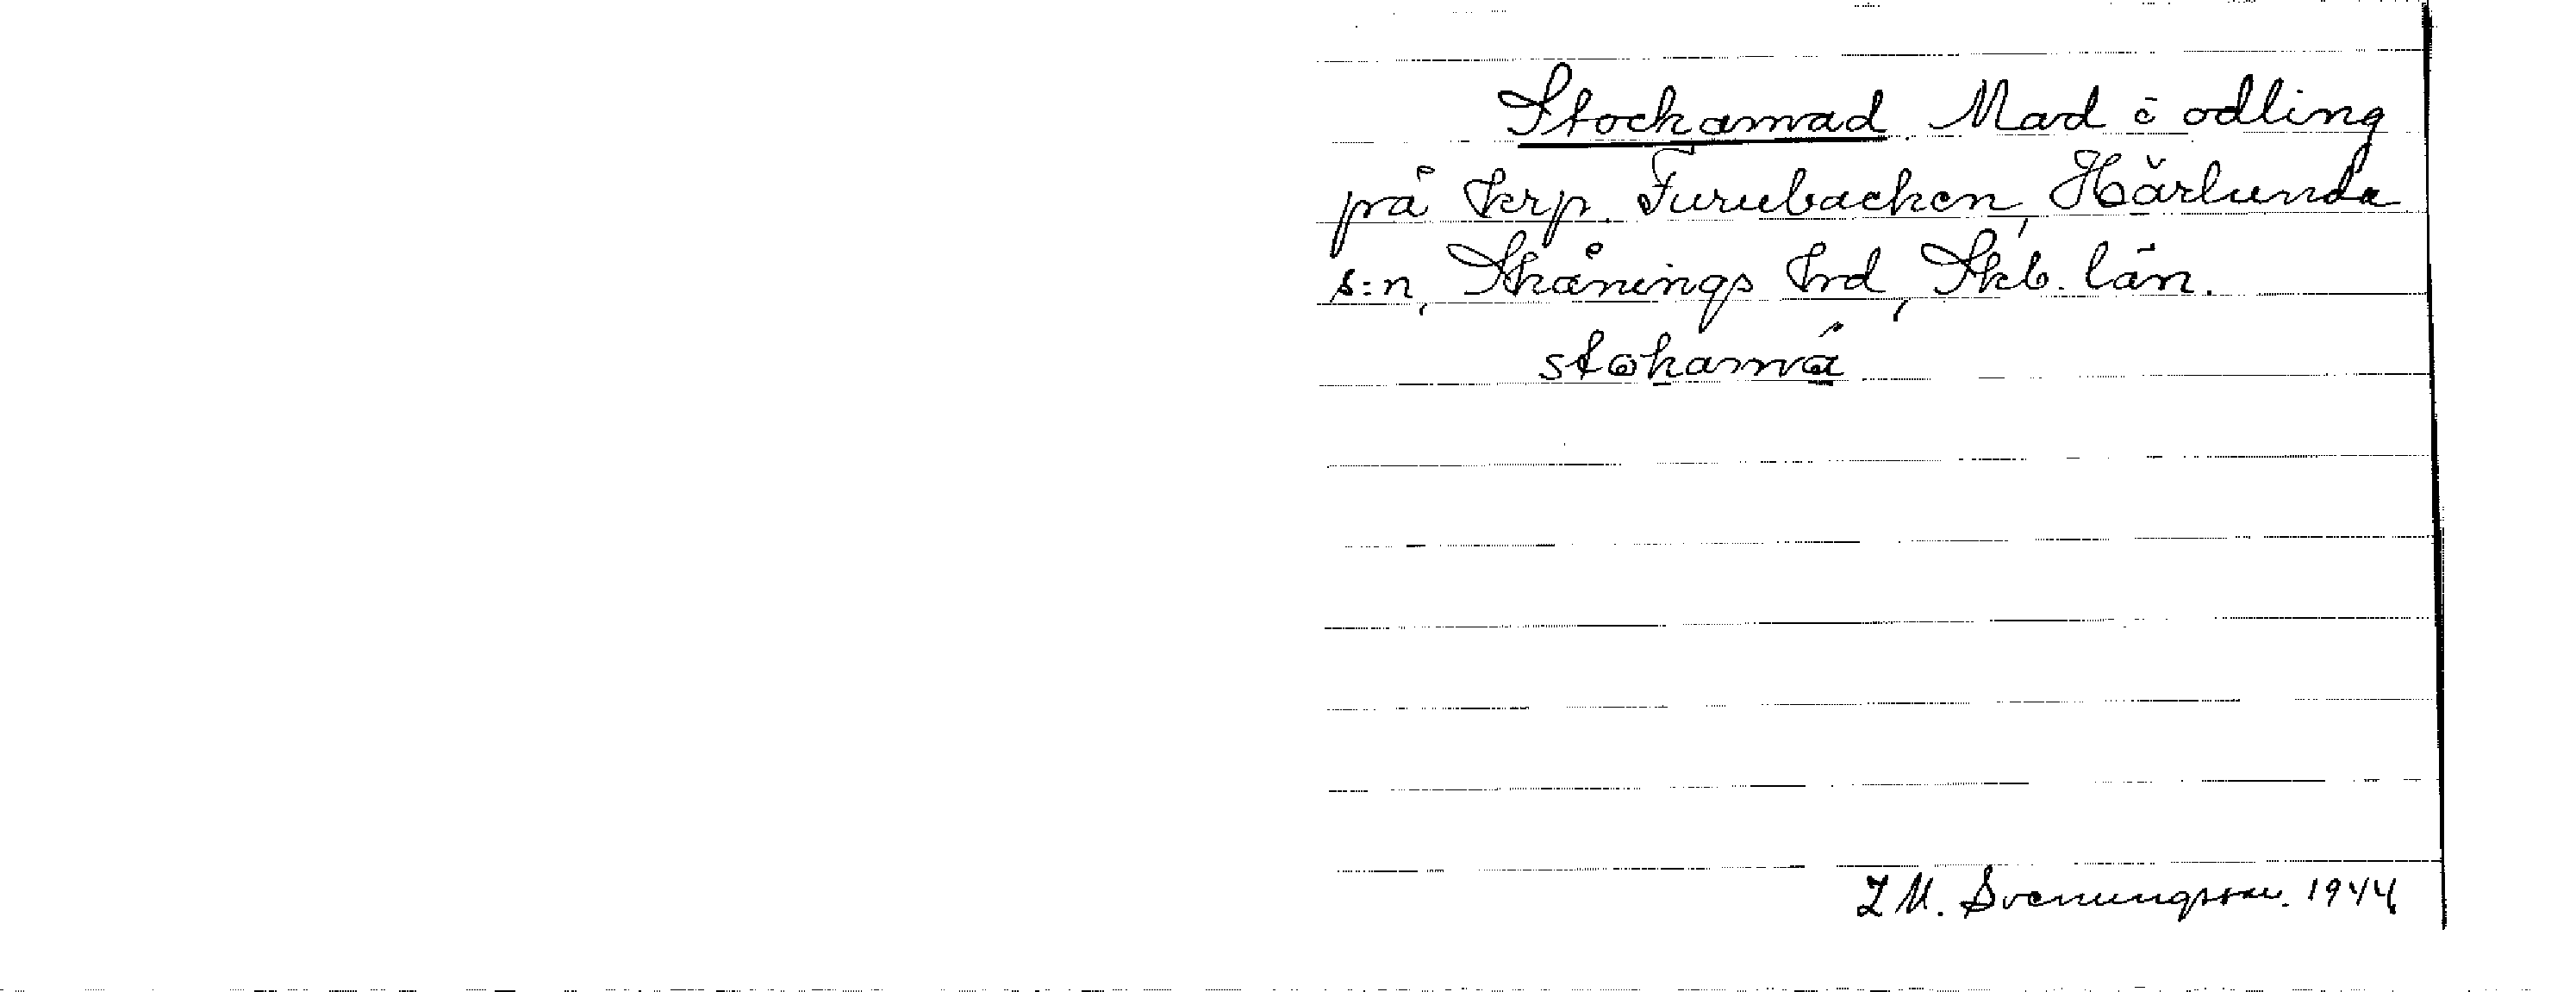 Stockamad. Mad i odling
på krp. Furubacken, Härlunda
s:n, Skånings hd, Skb. län.
stokamá
I M. Svenungsson. 1944